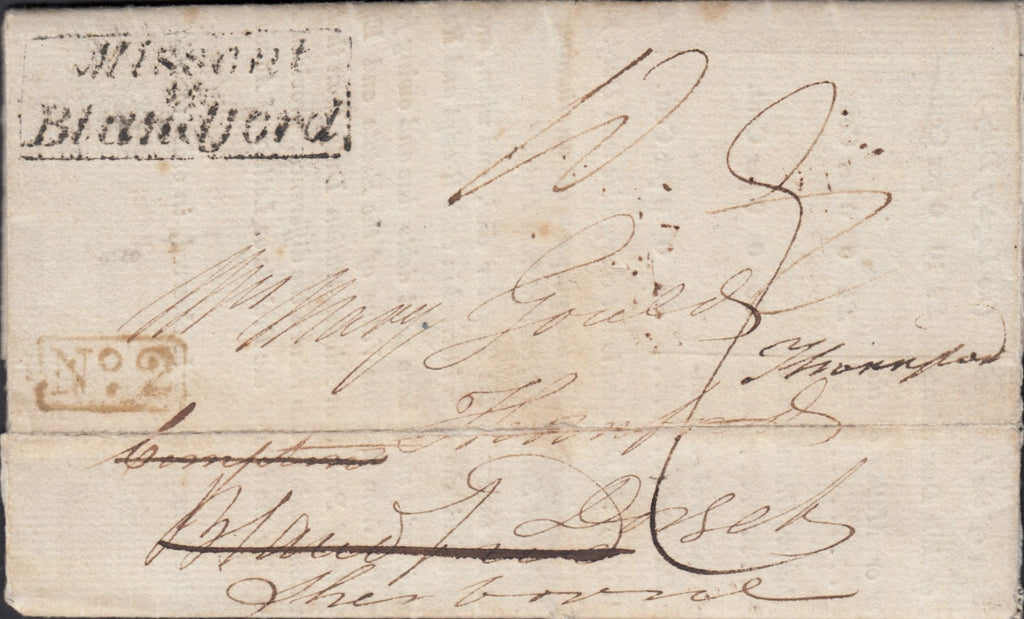 Missent
to
Blandford
Mrs Mary Gould
No. 2
Thornford
Thornford
Compton
Blandford Dorset
Sherborne